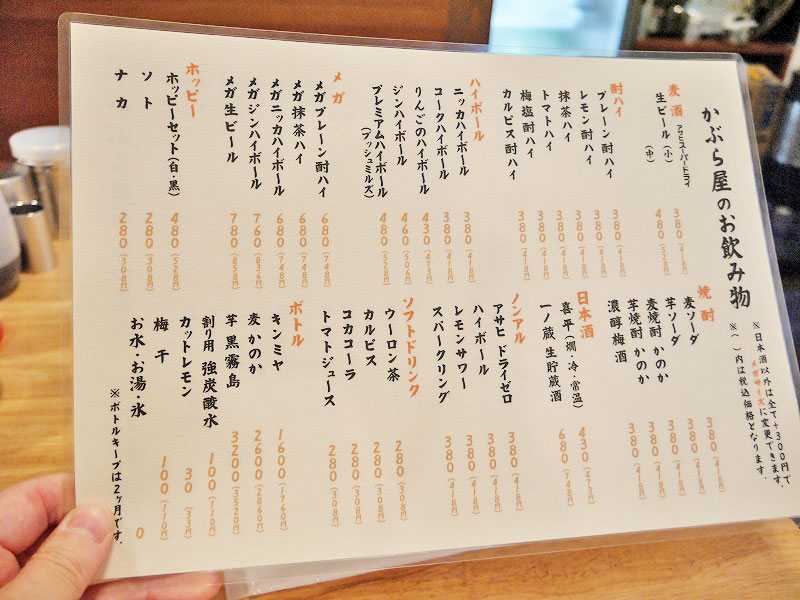 かぶら屋のお飲み物
※日本酒以外は全て+300円で
メガサイズに変更できます。
※( )内は税込価格となります。
麦酒
アサヒスーパードライ
生ビール (小) 380(418円)
(中) 480(528円)
酎ハイ
プレーン酎ハイ 380(418円)
レモン酎ハイ 380(418円)
抹茶ハイ 380(418円)
トマトハイ 380(418円)
梅塩酎ハイ 380(418円)
カルピス酎ハイ 380(418円)
ハイボール
ニッカハイボール 380(418円)
コークハイボール 380(418円)
りんごのハイボール 430(473円)
ジンハイボール 460(506円)
プレミアムハイボール 480(528円)
(ブッシュミルズ)
メガ
メガプレーン酎ハイ 680(748円)
メガ抹茶ハイ 680(748円)
メガニッカハイボール 680(748円)
メガジンハイボール 760(836円)
メガ生ビール 780(858円)
ホッピー
ホッピーセット(白・黒) 480(528円)
ソト 280(308円)
ナカ 280(308円)
焼酎
麦ソーダ 380(418円)
芋ソーダ 380(418円)
麦焼酎 かのか 380(418円)
芋焼酎 かのか 380(418円)
濃醇梅酒 380(418円)
日本酒
喜平(燗・冷・常温) 430(473円)
一ノ蔵 生貯蔵酒 680(748円)
ノンアル
アサヒ ドライゼロ 380(418円)
ハイボール 380(418円)
レモンサワー 380(418円)
スパークリング 380(418円)
ソフトドリンク
ウーロン茶 280(308円)
カルピス 280(308円)
コカコーラ 280(308円)
トマトジュース 280(308円)
ボトル
キンミヤ 1600(1760円)
麦 かのか 2600(2860円)
芋 黒霧島 3200(3520円)
割り用 強炭酸水 100(110円)
カットレモン 30(33円)
梅干 100(110円)
お水・お湯・氷 0
※ボトルキープは2ヶ月です。